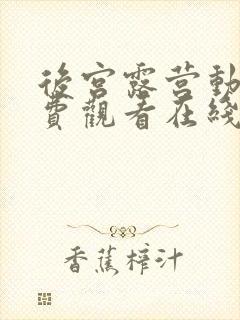 後宮露营動
費觀看在綫
香蕉榨汁